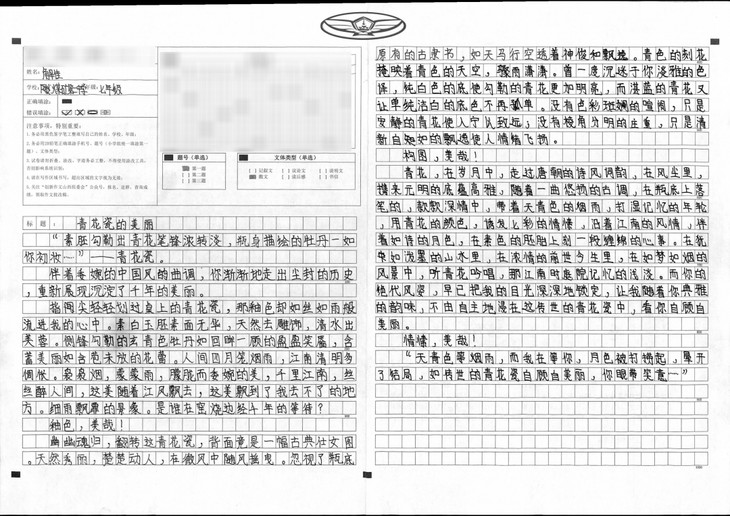 姓名：
学校： 年级：七年级
正确填涂：
错误填涂：
注意事项，特别重要：
题号（单选）
文体类型（单选）
第一题
第二题
第三题
记叙文
议论文
说明文
散文
读后感
书信
标题：青花瓷的美丽
“素胚勾勒出青花笔锋浓转淡，瓶身描绘的牡丹一如
你初妆～”——青花瓷。
伴着委婉的中国风的曲调，你渐渐地走出尘封的历史
，重新展现沉淀了千年的美丽。
指间尖轻轻划过桌上的青花瓷，那釉色却如丝如雨般
流进我的心中。素白玉胚素面无华，天然去雕饰，清水出
芙蓉。侧锋勾勒的玄青色牡丹如回眸一顾的盈盈笑靥，含
蓄美丽如含苞未放的花蕾。人间四月笼烟雨，江南清明多
惆怅。袅袅烟，蒙蒙雨，朦胧而委婉的美，千里江南，丝
丝醉人间，这美随着江风飘去，这美飘到了我去不了的地
方。细雨飘零的景象。是谁在窑烧边经千年的等待？
釉色，美哉！
幽幽魂归，翻转这青花瓷，背面竟是一幅古典仕女图
。天然秀丽，楚楚动人，在微风中随风摇曳。忽视了瓶底
原有的古隶书，如天马行空透着神俊和飘逸。青色的刻花
掩映着青色的天空，骤雨潇潇。首一度沉迷于你淡雅的色
彩，纯白色的底使勾勒的青花更加明亮，而湛蓝的青花又
让单纯洁白的底色不再孤单。没有色彩斑斓的喧闹，只是
安静的青花使人宁从致远，没有棱角分明的庄重，只是清
新自如的飘逸使人情绪飞扬。
构图，美哉！
青花，在岁月中，走过唐朝的诗风词韵，在风尘里，
携来元明的底蕴高雅，随着一曲悠扬的古调，在瓶底上落
笔的，款款深情中，带着天青色的烟雨，打湿记忆的年轮
，用青花的颜色，诱发七彩的情愫，沿着江南的风情，伴
着如诗的月色，在素色的胚胎上刻一段缠绵的心事。在宛
如浅墨的山水里，在浓情的前世今生里，在如梦如烟的
风景中，听青花吟唱，那江南时庭院记忆的浅淡。而你的
绝代风姿，早已把我的目光深深地锁定，让我随着你典雅
的韵味，不由自主地浸在这传世的青花瓷中，看你自顾自
美丽。
情愫，美哉！
“天青色等烟雨，而我在等你，月色被打捞起，晕开
了结局，如传世的青花瓷自顾自美丽，你眼带笑意～”